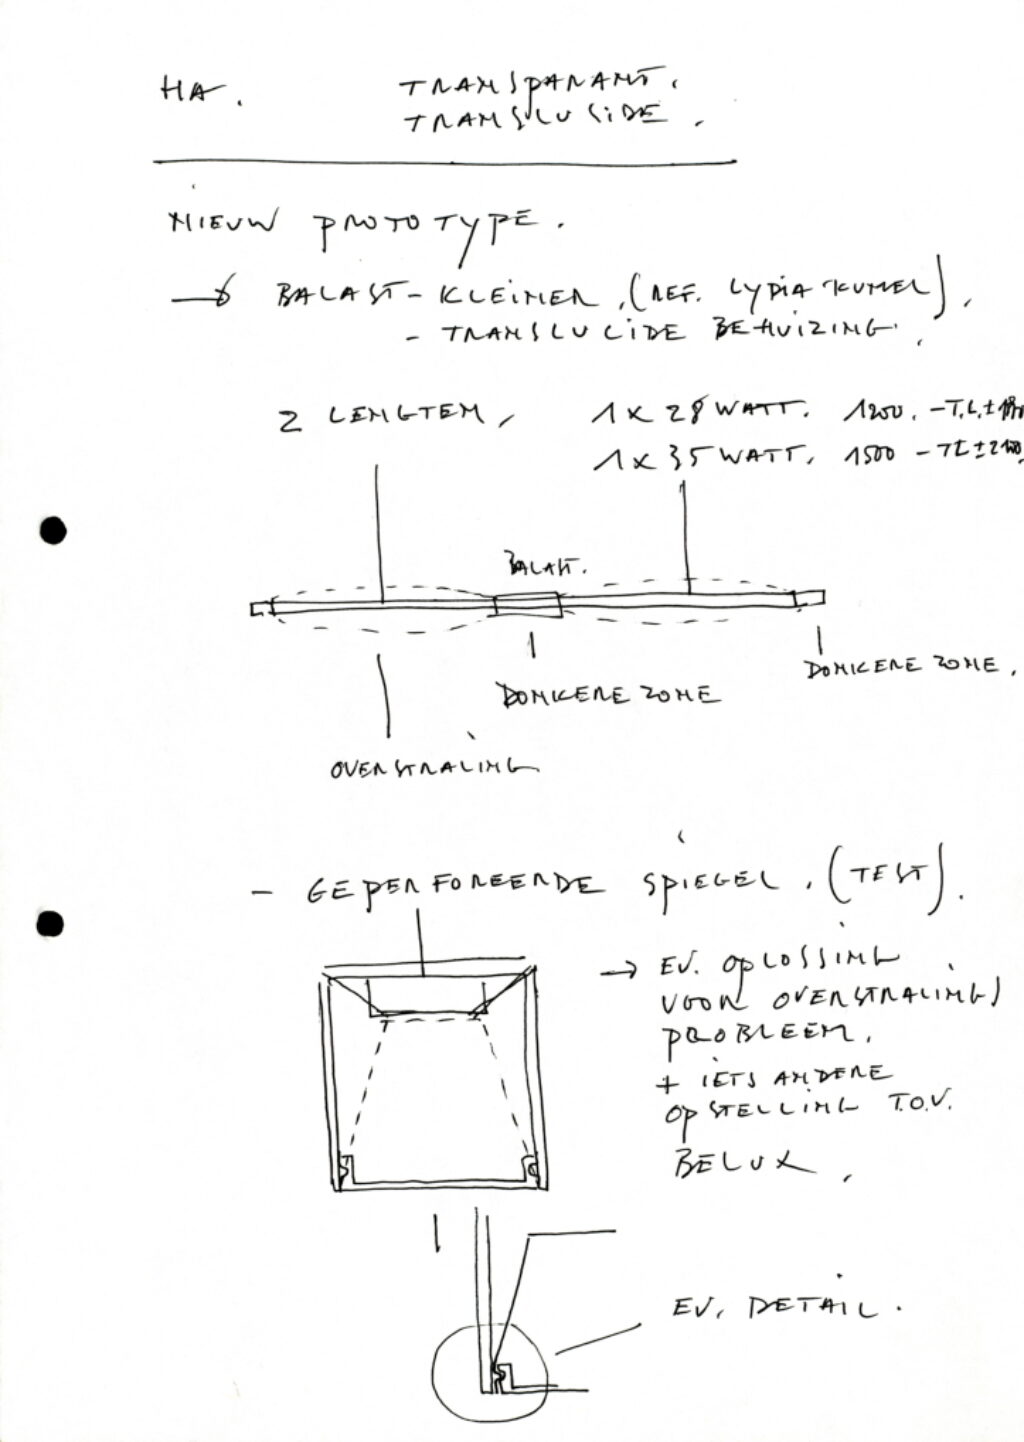 HA. TRANSPARANT.
TRANSLUSIDE.
NIEUW PROTOTYPE.
→ BALAST - KLEINER, (REF. LYDIA KUMEL),
- TRANSLUCIDE BEHUIZING.
2 LENGTEN, 1 X 28 WATT. 1200. - T.L. ±
1 X 35 WATT. 1500 - TL ±
BALAST.
DONKERE ZONE,
DONKERE ZONE
OVERSTRALING
- GEPERFOREERDE SPIEGEL. (TEST).
→ EV. OPLOSSING
VOOR OVERSTRALINGS
PROBLEEM.
+ IETS ANDERE
OPSTELLING T.O.V.
BELUX,
EV. DETAIL.